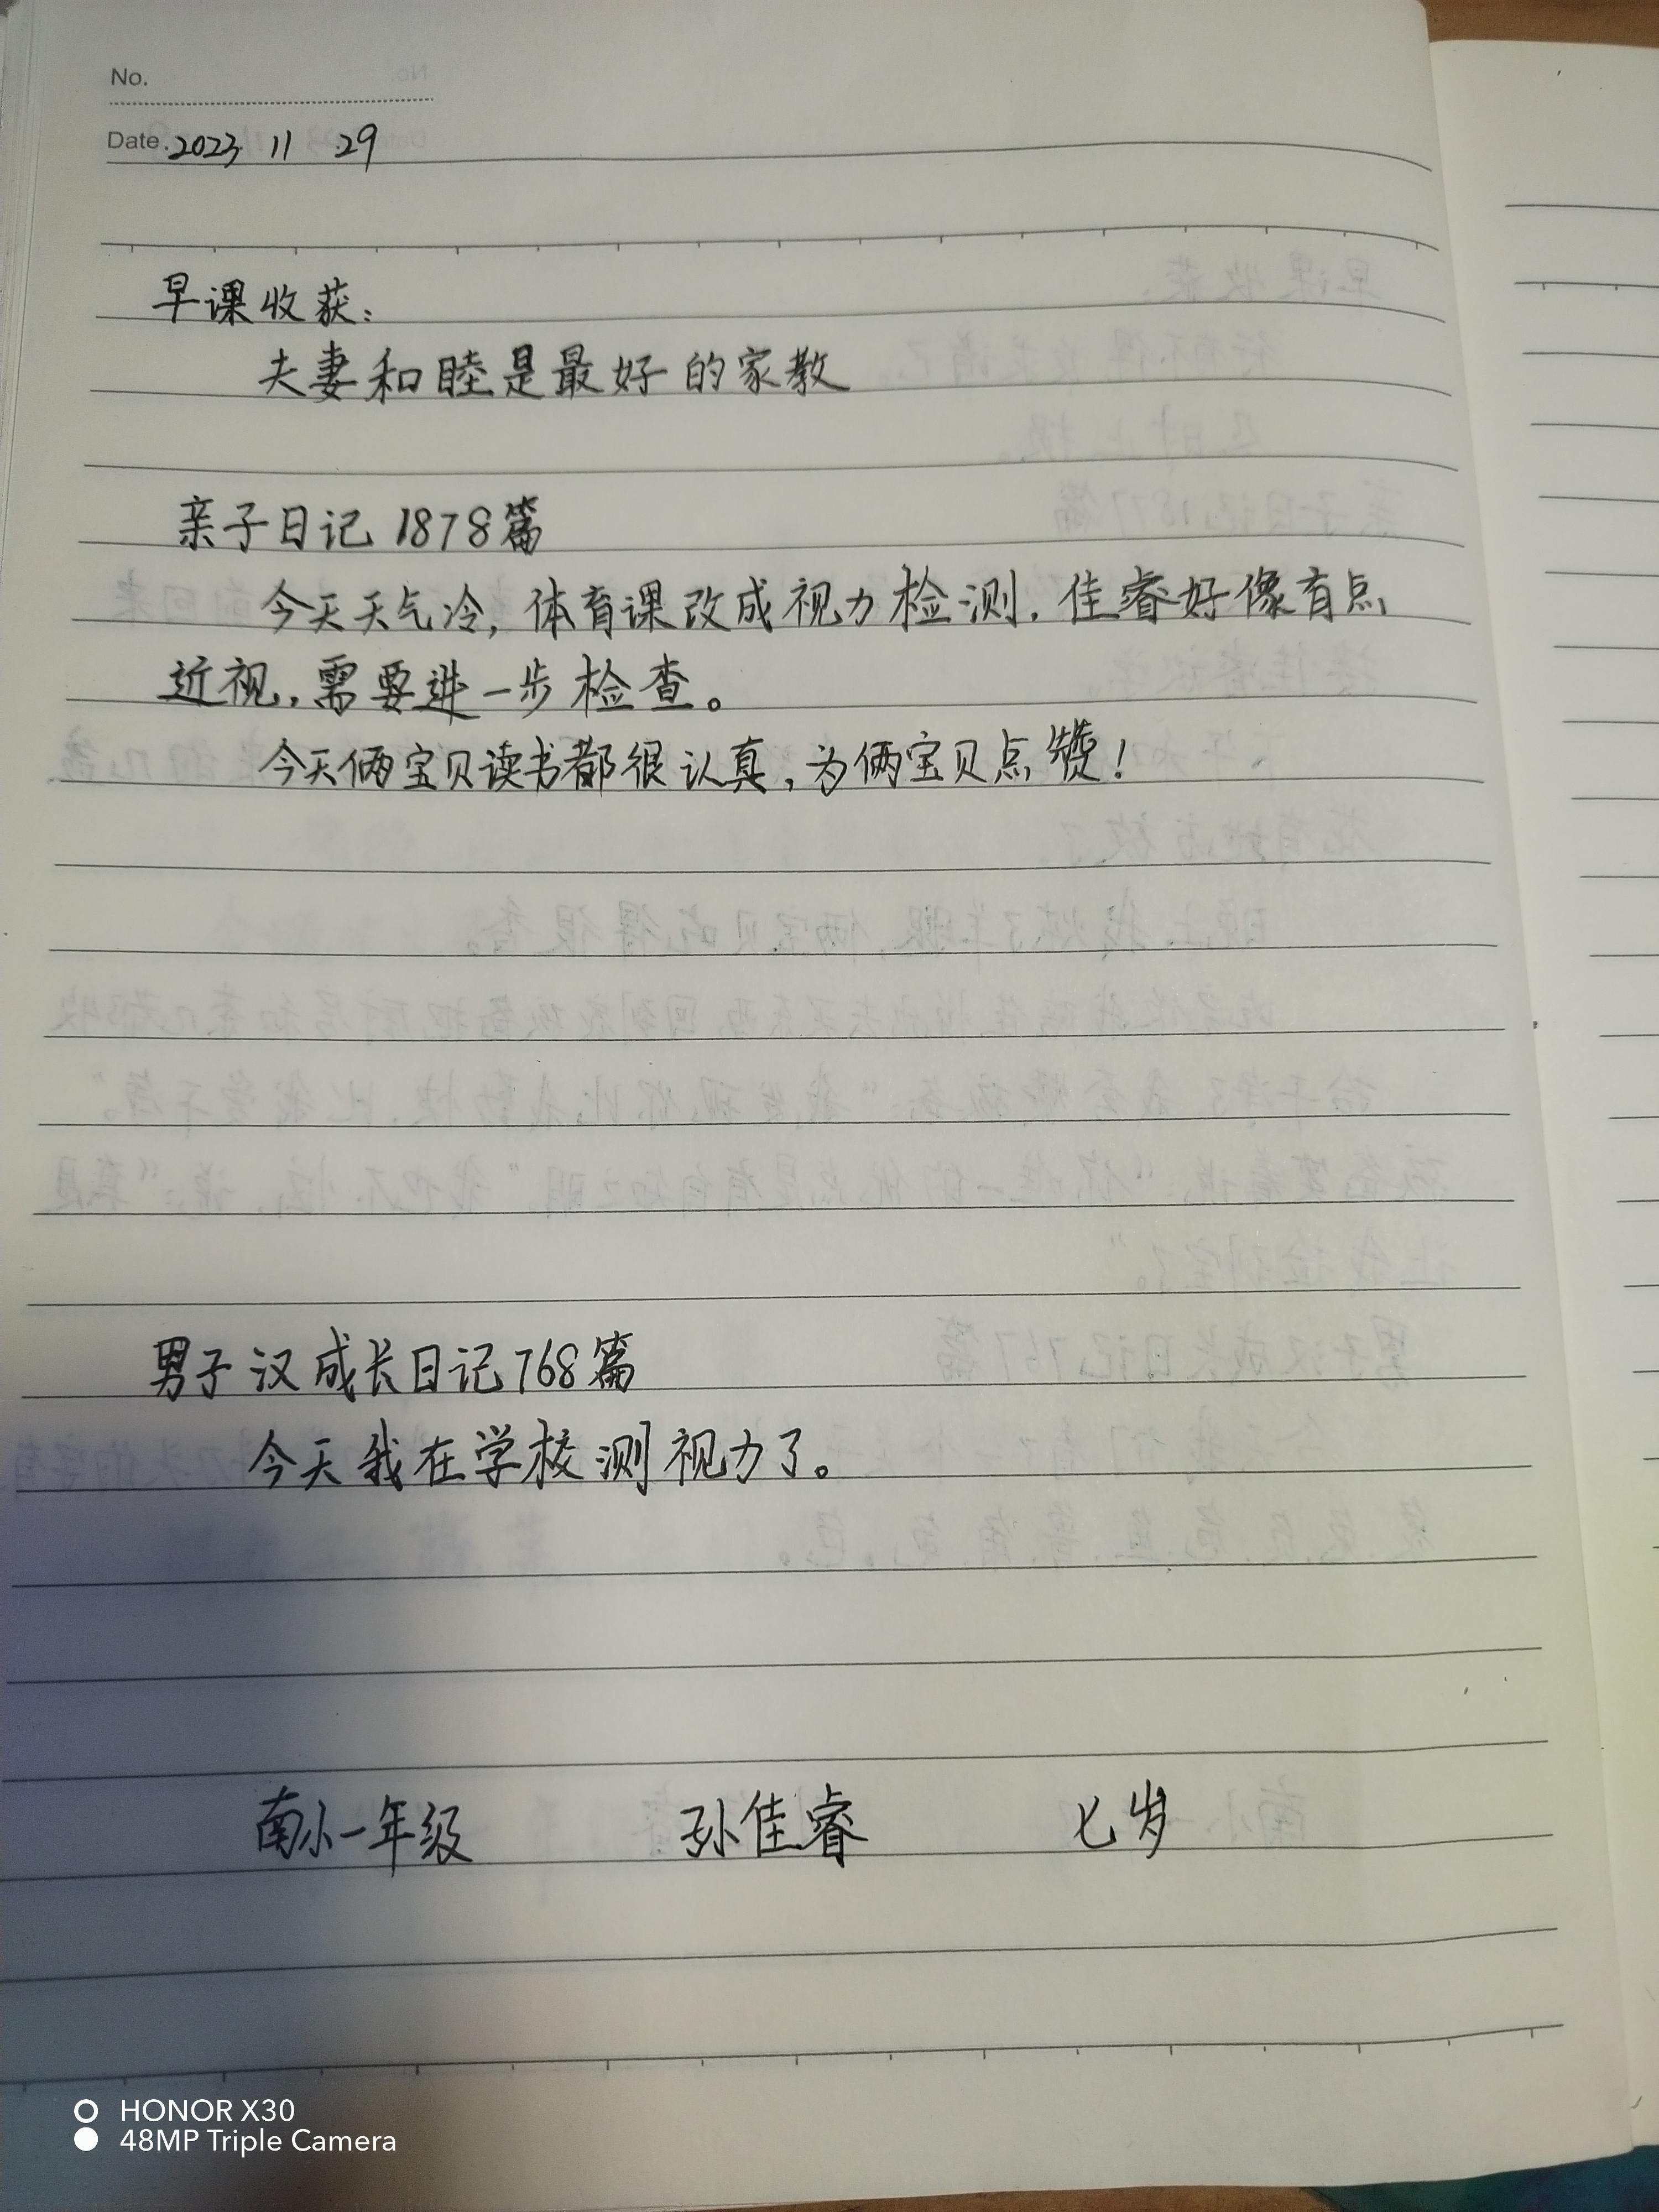 No.
Date. 2023 11 29
早课收获:
夫妻和睦是最好的家教
亲子日记1878篇
今天天气冷,体育课改成视力检测,佳睿好像有点
近视,需要进一步检查。
今天俩宝贝读书都很认真,为俩宝贝点赞!
男子汉成长日记768篇
今天我在学校测视力了。
南小一年级 孙佳睿 七岁
HONOR X30
48MP Triple Camera